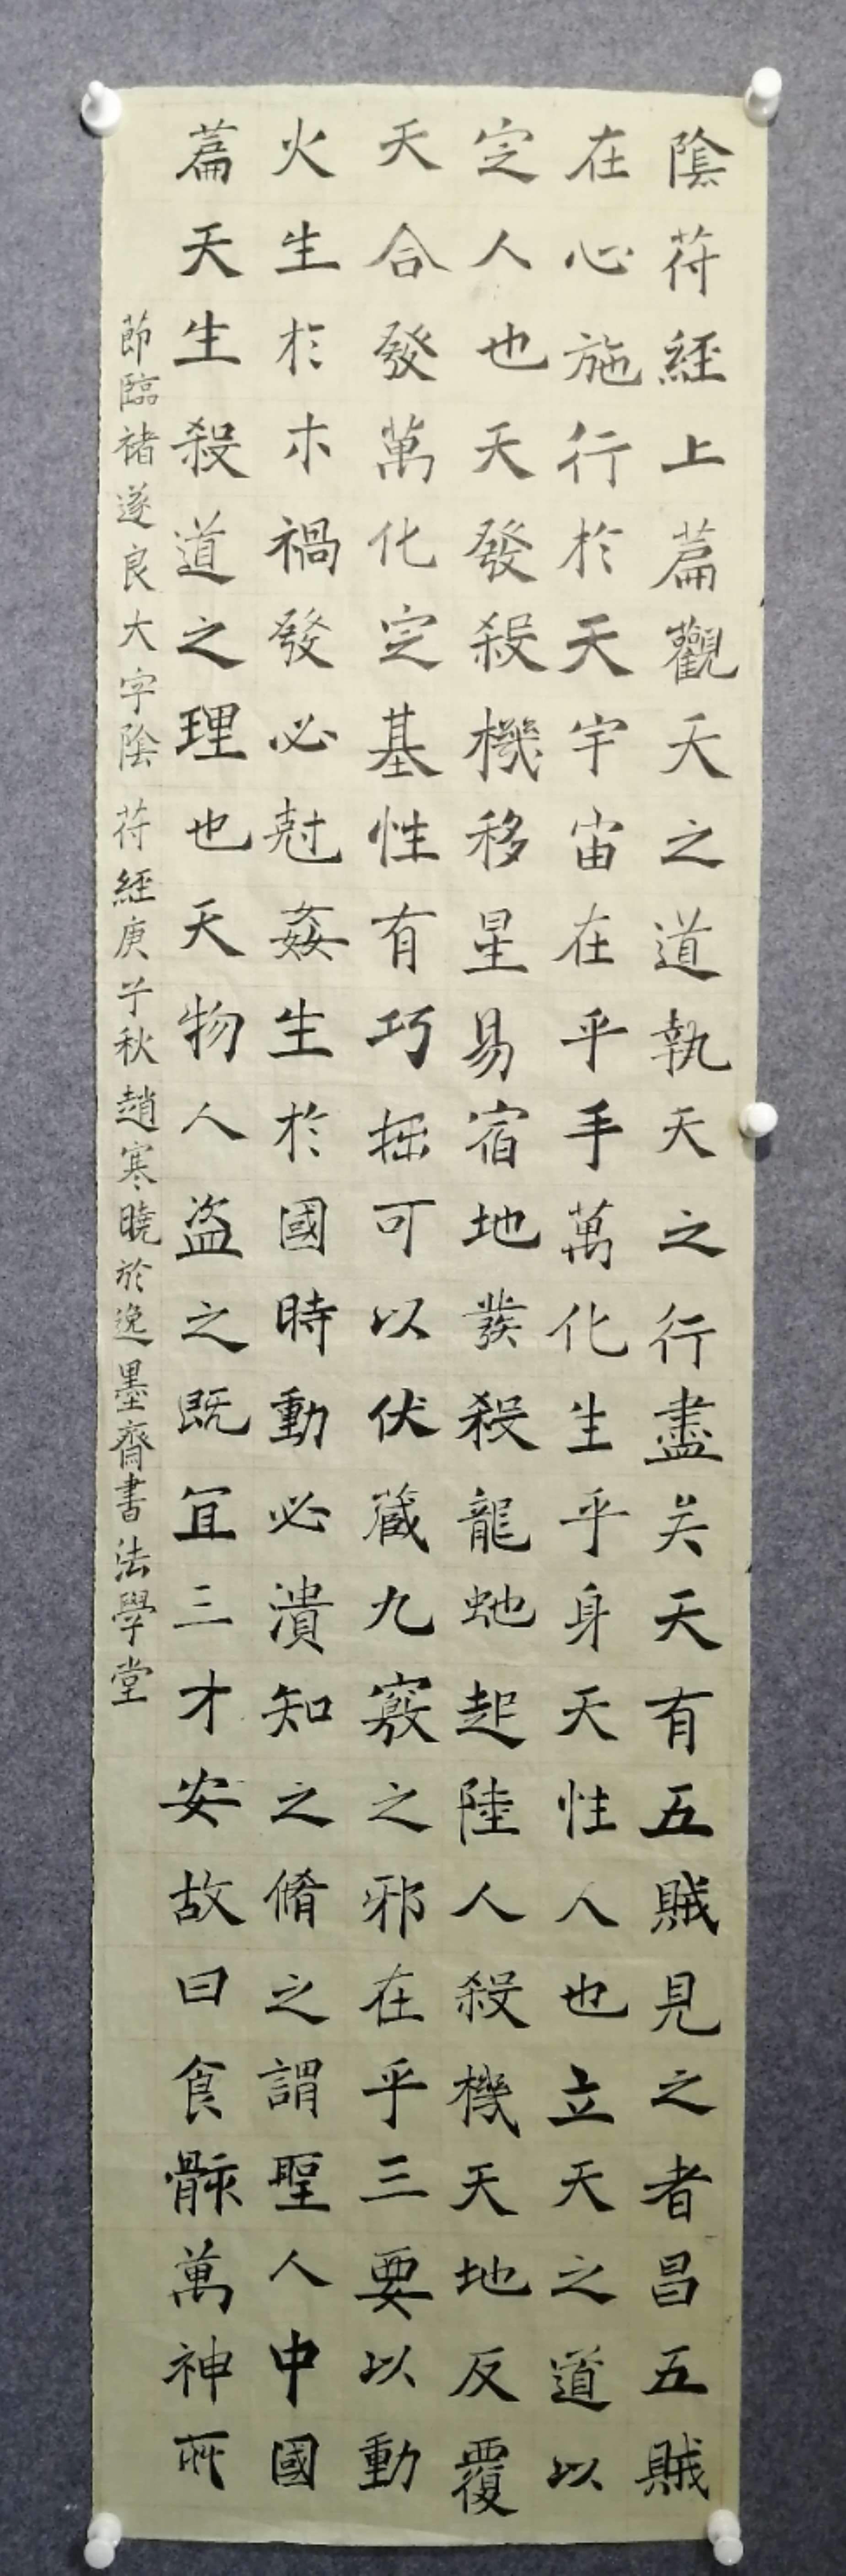 陰符經上篇觀天之道執天之行盡矣天有五賊見之者昌五賊
在心施行於天宇宙在乎手萬化生乎身天性人也立天之道以
定人也天發殺機移星易宿地發殺龍虵起陸人殺機天地反覆
天合發萬化定基性有巧拙可以伏藏九竅之邪在乎三要以動
火生於木禍發必尅姦生於國時動必潰知之脩之謂聖人中國
篇天生殺道之理也天物人盜之既宜三才安故曰食骸萬神所
節臨褚遂良大字陰符經庚子秋趙寒曉於逸墨齋書法學堂